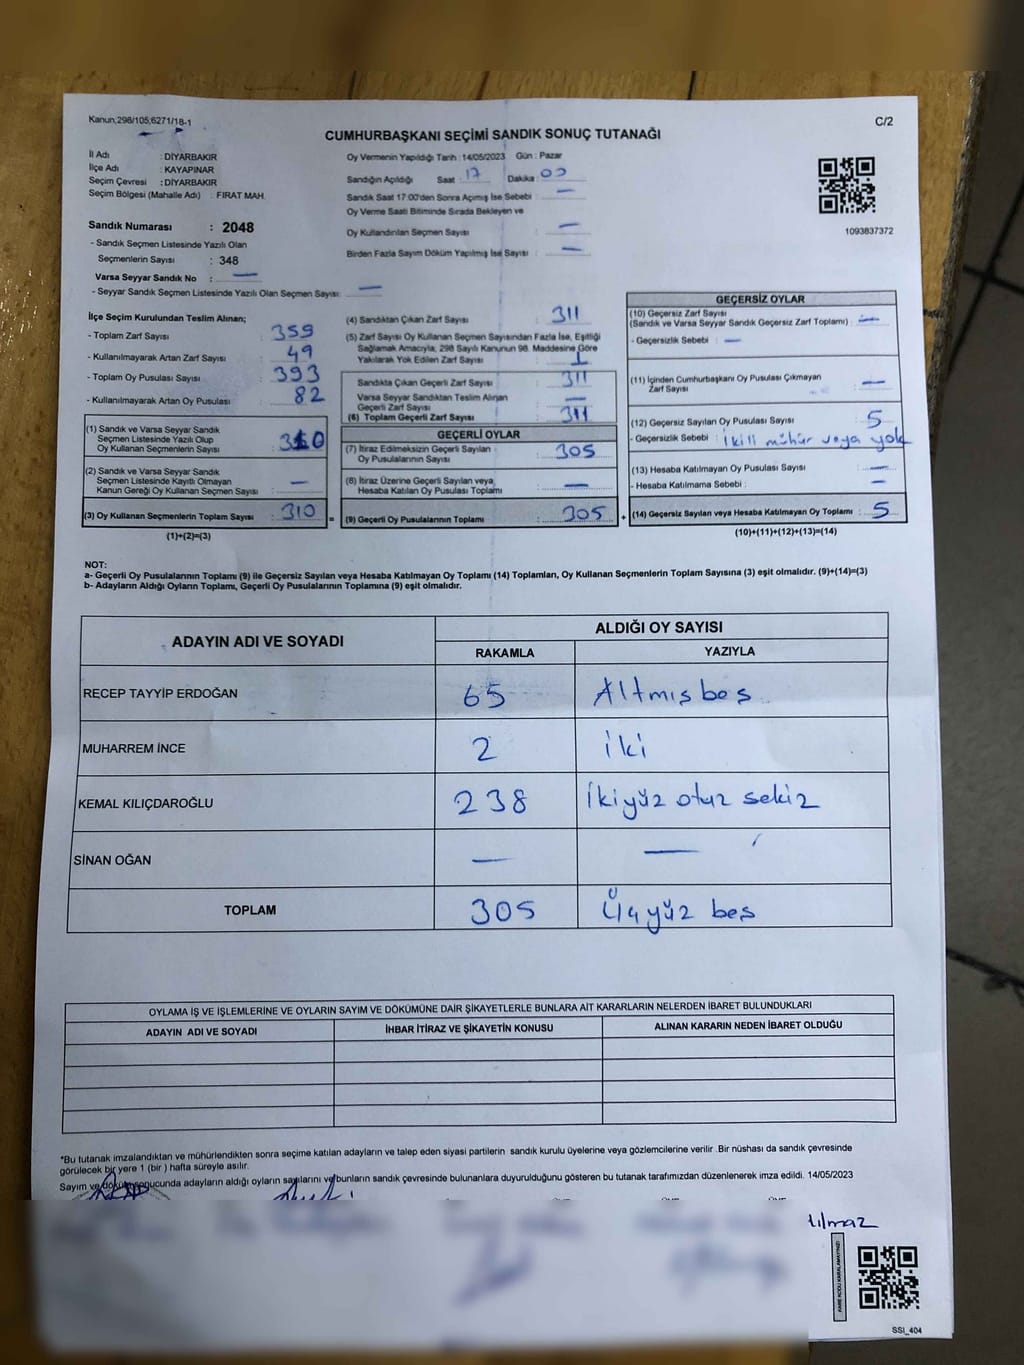 Kanun,298/105,6271/18-1
C/2
CUMHURBAŞKANI SEÇİMİ SANDIK SONUÇ TUTANAĞI
İl Adı : DİYARBAKIR
İlçe Adı : KAYAPINAR
Seçim Çevresi : DİYARBAKIR
Seçim Bölgesi (Mahalle Adı) : FIRAT MAH.
Sandık Numarası : 2048
- Sandık Seçmen Listesinde Yazılı Olan
Seçmenlerin Sayısı : 348
Varsa Seyyar Sandık No : —
- Seyyar Sandık Seçmen Listesinde Yazılı Olan Seçmen Sayısı: —
Oy Vermenin Yapıldığı Tarih : 14/05/2023 Gün : Pazar
Sandığın Açıldığı Saat : 17 Dakika : 00
Sandık Saat 17:00'den Sonra Açımış İse Sebebi : —
Oy Verme Saati Bitiminde Sırada Bekleyen ve
Oy Kullandırılan Seçmen Sayısı : —
Birden Fazla Sayım Döküm Yapılmış İse Sayısı : —
1093837372
İlçe Seçim Kurulundan Teslim Alınan;
- Toplam Zarf Sayısı : 359
- Kullanılmayarak Artan Zarf Sayısı : 49
- Toplam Oy Pusulası Sayısı : 393
- Kullanılmayarak Artan Oy Pusulası : 82
(1) Sandık ve Varsa Seyyar Sandık
Seçmen Listesinde Yazılı Olup
Oy Kullanan Seçmenlerin Sayısı : 310
(2) Sandık ve Varsa Seyyar Sandık
Seçmen Listesinde Kayıtlı Olmayan
Kanun Gereği Oy Kullanan Seçmen Sayısı : —
(3) Oy Kullanan Seçmenlerin Toplam Sayısı : 310 =
(1)+(2)=(3)
(4) Sandıktan Çıkan Zarf Sayısı : 311
(5) Zarf Sayısı Oy Kullanan Seçmen Sayısından Fazla İse, Eşitliği
Sağlamak Amacıyla, 298 Sayılı Kanunun 98. Maddesine Göre
Yakılarak Yok Edilen Zarf Sayısı : 1
Sandıkta Çıkan Geçerli Zarf Sayısı : 311
Varsa Seyyar Sandıktan Teslim Alınan
Geçerli Zarf Sayısı : —
(6) Toplam Geçerli Zarf Sayısı : 311
GEÇERLİ OYLAR
(7) İtiraz Edilmeksizin Geçerli Sayılan
Oy Pusulalarının Sayısı : 305
(8) İtiraz Üzerine Geçerli Sayılan veya
Hesaba Katılan Oy Pusulası Toplamı : —
(9) Geçerli Oy Pusulalarının Toplamı : 305 +
GEÇERSİZ OYLAR
(10) Geçersiz Zarf Sayısı
(Sandık ve Varsa Seyyar Sandık Geçersiz Zarf Toplamı) : —
- Geçersizlik Sebebi : —
(11) İçinden Cumhurbaşkanı Oy Pusulası Çıkmayan
Zarf Sayısı : —
(12) Geçersiz Sayılan Oy Pusulası Sayısı : 5
- Geçersizlik Sebebi : İkili mühür veya yok
(13) Hesaba Katılmayan Oy Pusulası Sayısı : —
- Hesaba Katılmama Sebebi : —
(14) Geçersiz Sayılan veya Hesaba Katılmayan Oy Toplamı : 5
(10)+(11)+(12)+(13)=(14)
NOT:
a- Geçerli Oy Pusulalarının Toplamı (9) ile Geçersiz Sayılan veya Hesaba Katılmayan Oy Toplamı (14) Toplamları, Oy Kullanan Seçmenlerin Toplam Sayısına (3) eşit olmalıdır. (9)+(14)=(3)
b- Adayların Aldığı Oyların Toplamı, Geçerli Oy Pusulalarının Toplamına (9) eşit olmalıdır.
ADAYIN ADI VE SOYADI ALDIĞI OY SAYISI
RAKAMLA YAZIYLA
RECEP TAYYİP ERDOĞAN 65 Altmışbeş
MUHARREM İNCE 2 İki
KEMAL KILIÇDAROĞLU 238 İkiyüz otuz sekiz
SİNAN OĞAN — —
TOPLAM 305 Üçyüz beş
OYLAMA İŞ VE İŞLEMLERİNE VE OYLARIN SAYIM VE DÖKÜMÜNE DAİR ŞİKAYETLERLE BUNLARA AİT KARARLARIN NELERDEN İBARET BULUNDUKLARI
ADAYIN ADI VE SOYADI İHBAR İTİRAZ VE ŞİKAYETİN KONUSU ALINAN KARARIN NEDEN İBARET OLDUĞU
*Bu tutanak imzalandıktan ve mühürlendikten sonra seçime katılan adayların ve talep eden siyasi partilerin sandık kurulu üyelerine veya gözlemcilerine verilir .Bir nüshası da sandık çevresinde
görülecek bir yere 1 (bir ) hafta süreyle asılır.
Sayım ve döküm sonucunda adayların aldığı oyların sayılarını ve bunların sandık çevresinde bulunanlara duyurulduğunu gösteren bu tutanak tarafımızdan düzenlenerek imza edildi. 14/05/2023
SSI_404